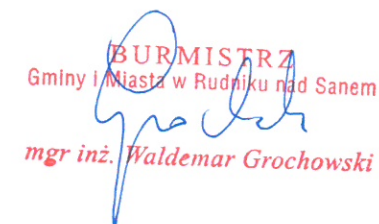 BURMISTRZ
Gminy i Miasta w Rudniku nad Sanem
mgr inż. Waldemar Grochowski